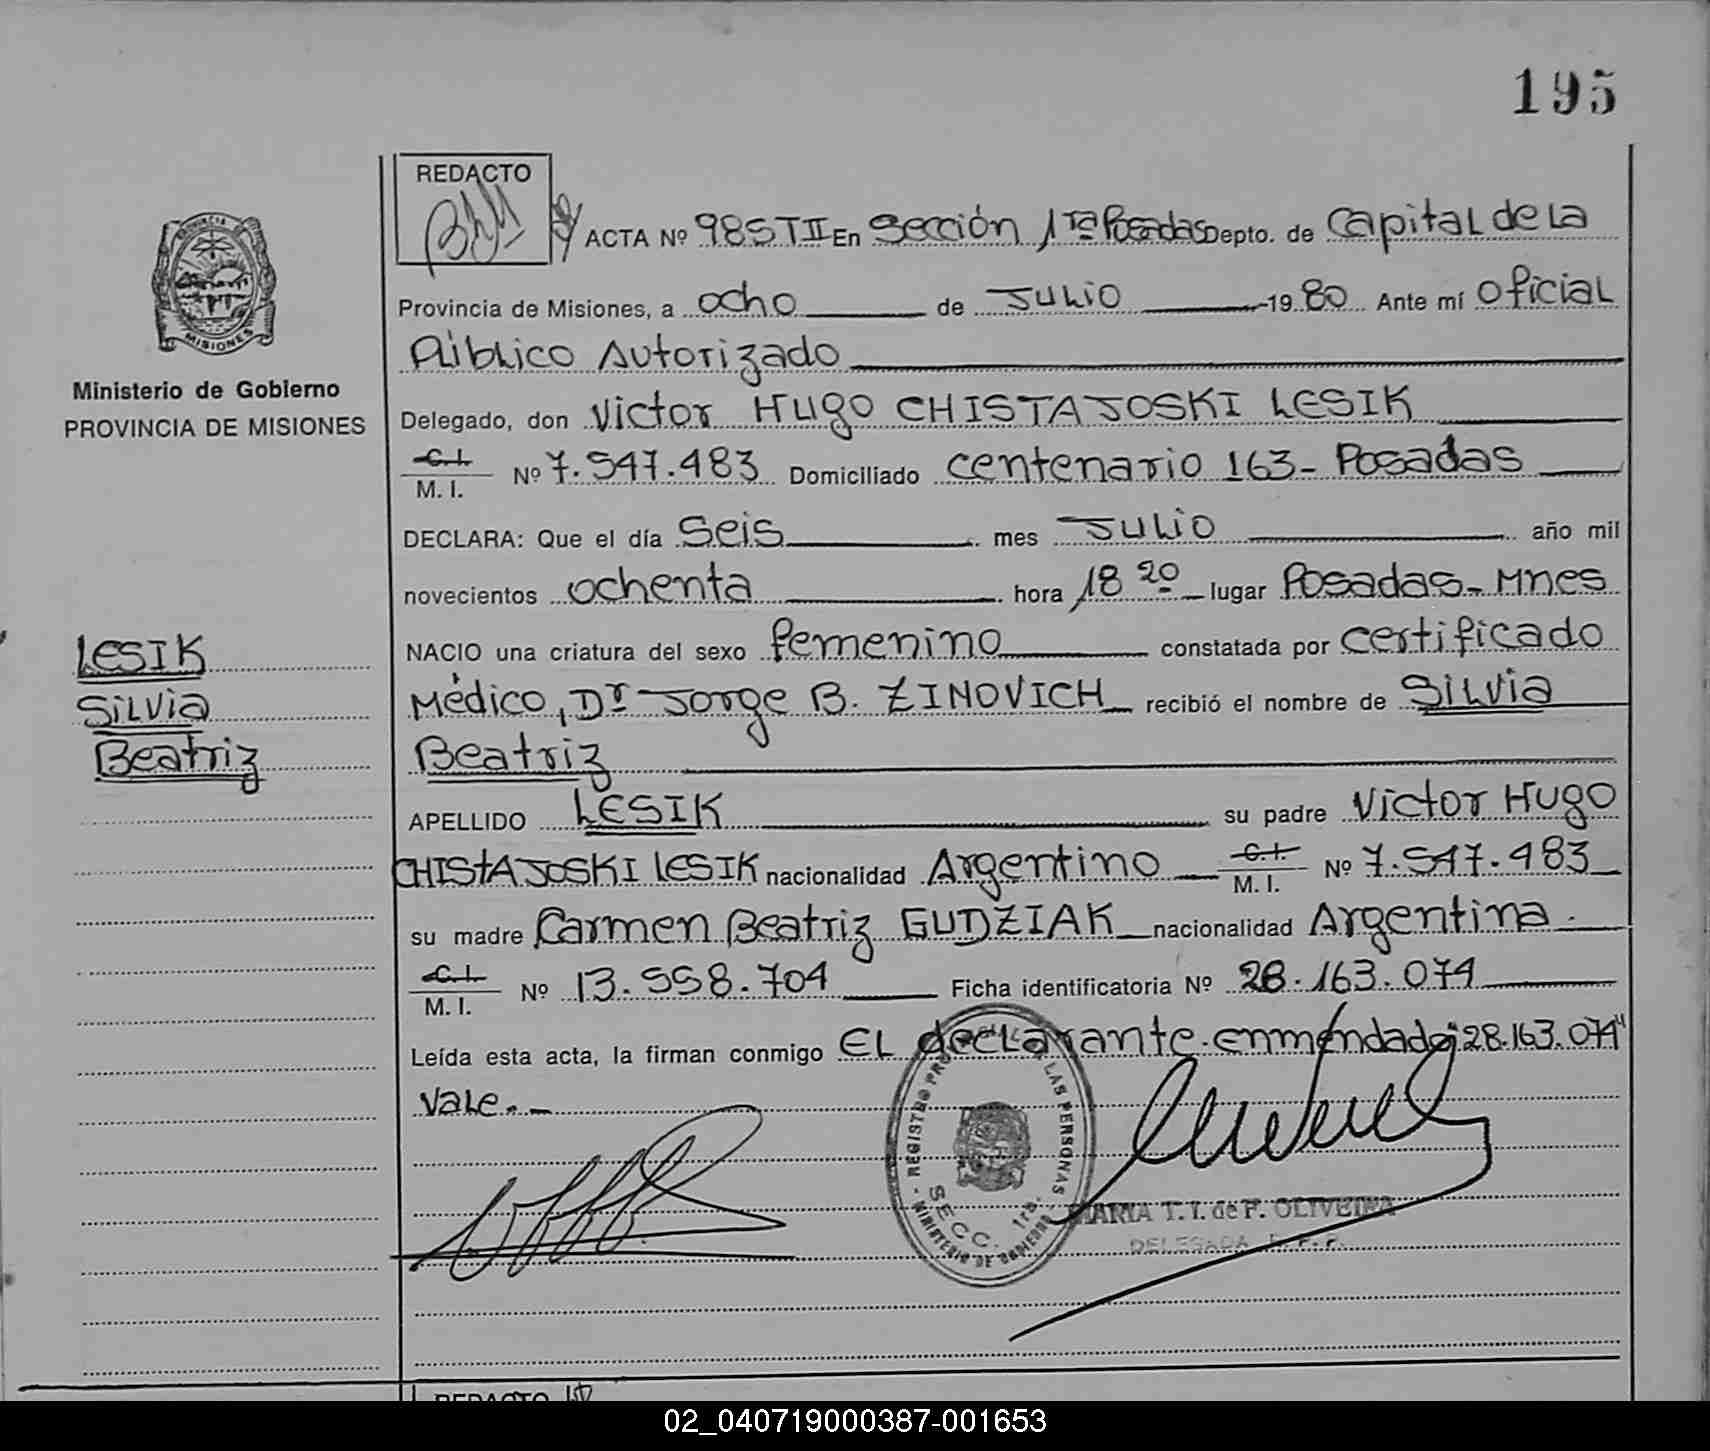 195
REDACTO
ACTA Nº 985 T II En Sección 1ra Posadas Depto. de Capital de La
Provincia de Misiones, a ocho de Julio 1980 Ante mí Oficial
Público Autorizado
MISIONES
Ministerio de Gobierno
PROVINCIA DE MISIONES
Delegado, don Victor Hugo CHISTAJOSKI LESIK
C.I.
M. I. Nº 7.547.483 Domiciliado Centenario 163- Posadas
DECLARA: Que el día Seis mes Julio año mil
novecientos ochenta hora 18 20 lugar Posadas- Mnes
LESIK
Silvia
Beatriz
NACIO una criatura del sexo femenino constatada por certificado
Médico, Dr Jorge B. ZINOVICH recibió el nombre de Silvia
Beatriz
APELLIDO LESIK su padre Victor Hugo
CHISTAJOSKI LESIK nacionalidad Argentino C.I. M. I. Nº 7.547.483
su madre Carmen Beatriz GUDZIAK nacionalidad Argentina.
C.I.
M. I. Nº 13.558.704 Ficha identificatoria Nº 28.163.074
Leída esta acta, la firman conmigo EL declarante. enmendado: 28.163.074"
Vale.-
REGISTRO PRO LAS PERSONAS
SECC. 1ra.
MINISTERIO DE GOBIERNO
MARIA T. I. de F. OLIVEIRA
DELEGADA
REDACTO
02_040719000387-001653